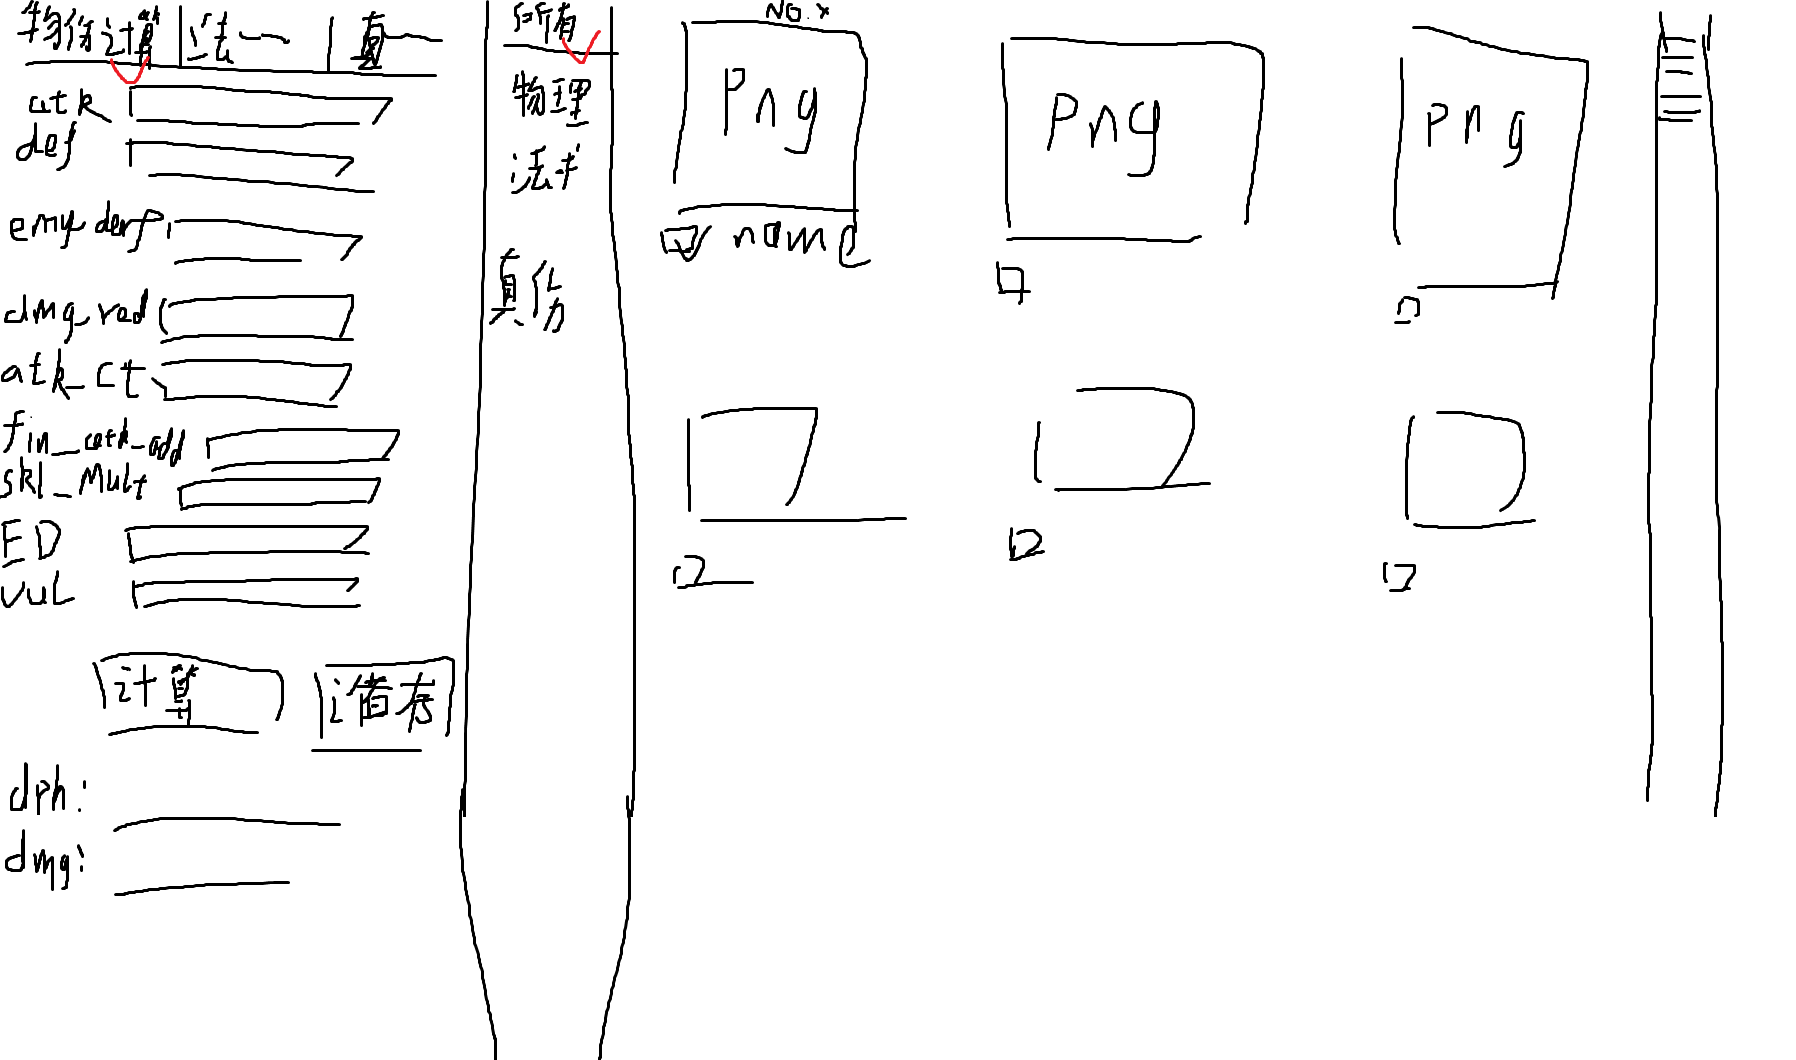 物伤计算 法 真
atk
def
emy_derf
dmg_red
atk_ct
fin_atk_add
skl_Mult
ED
vul
计算 储存
dph:
dmg:
所有
物理
法术
真伤
NO.x
Png
name
Png
Png